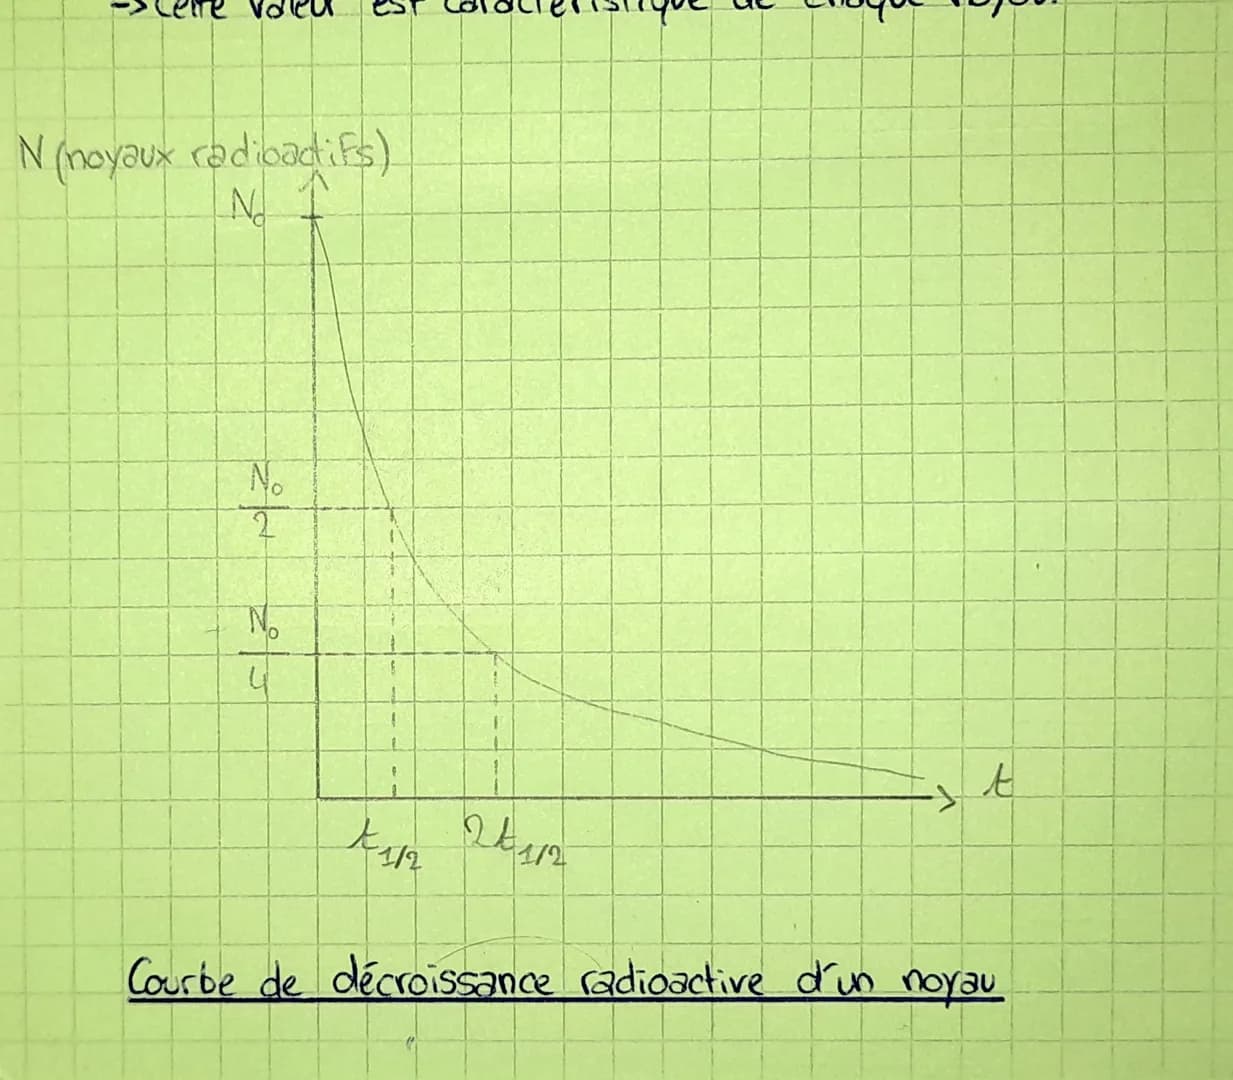 ->Cette valeur est caractéristique de chaque noyau.
N (noyaux radioactifs)
N₀
N₀
2
N₀
4
t
t 1/2
2t 1/2
Courbe de décroissance radioactive d'un noyau